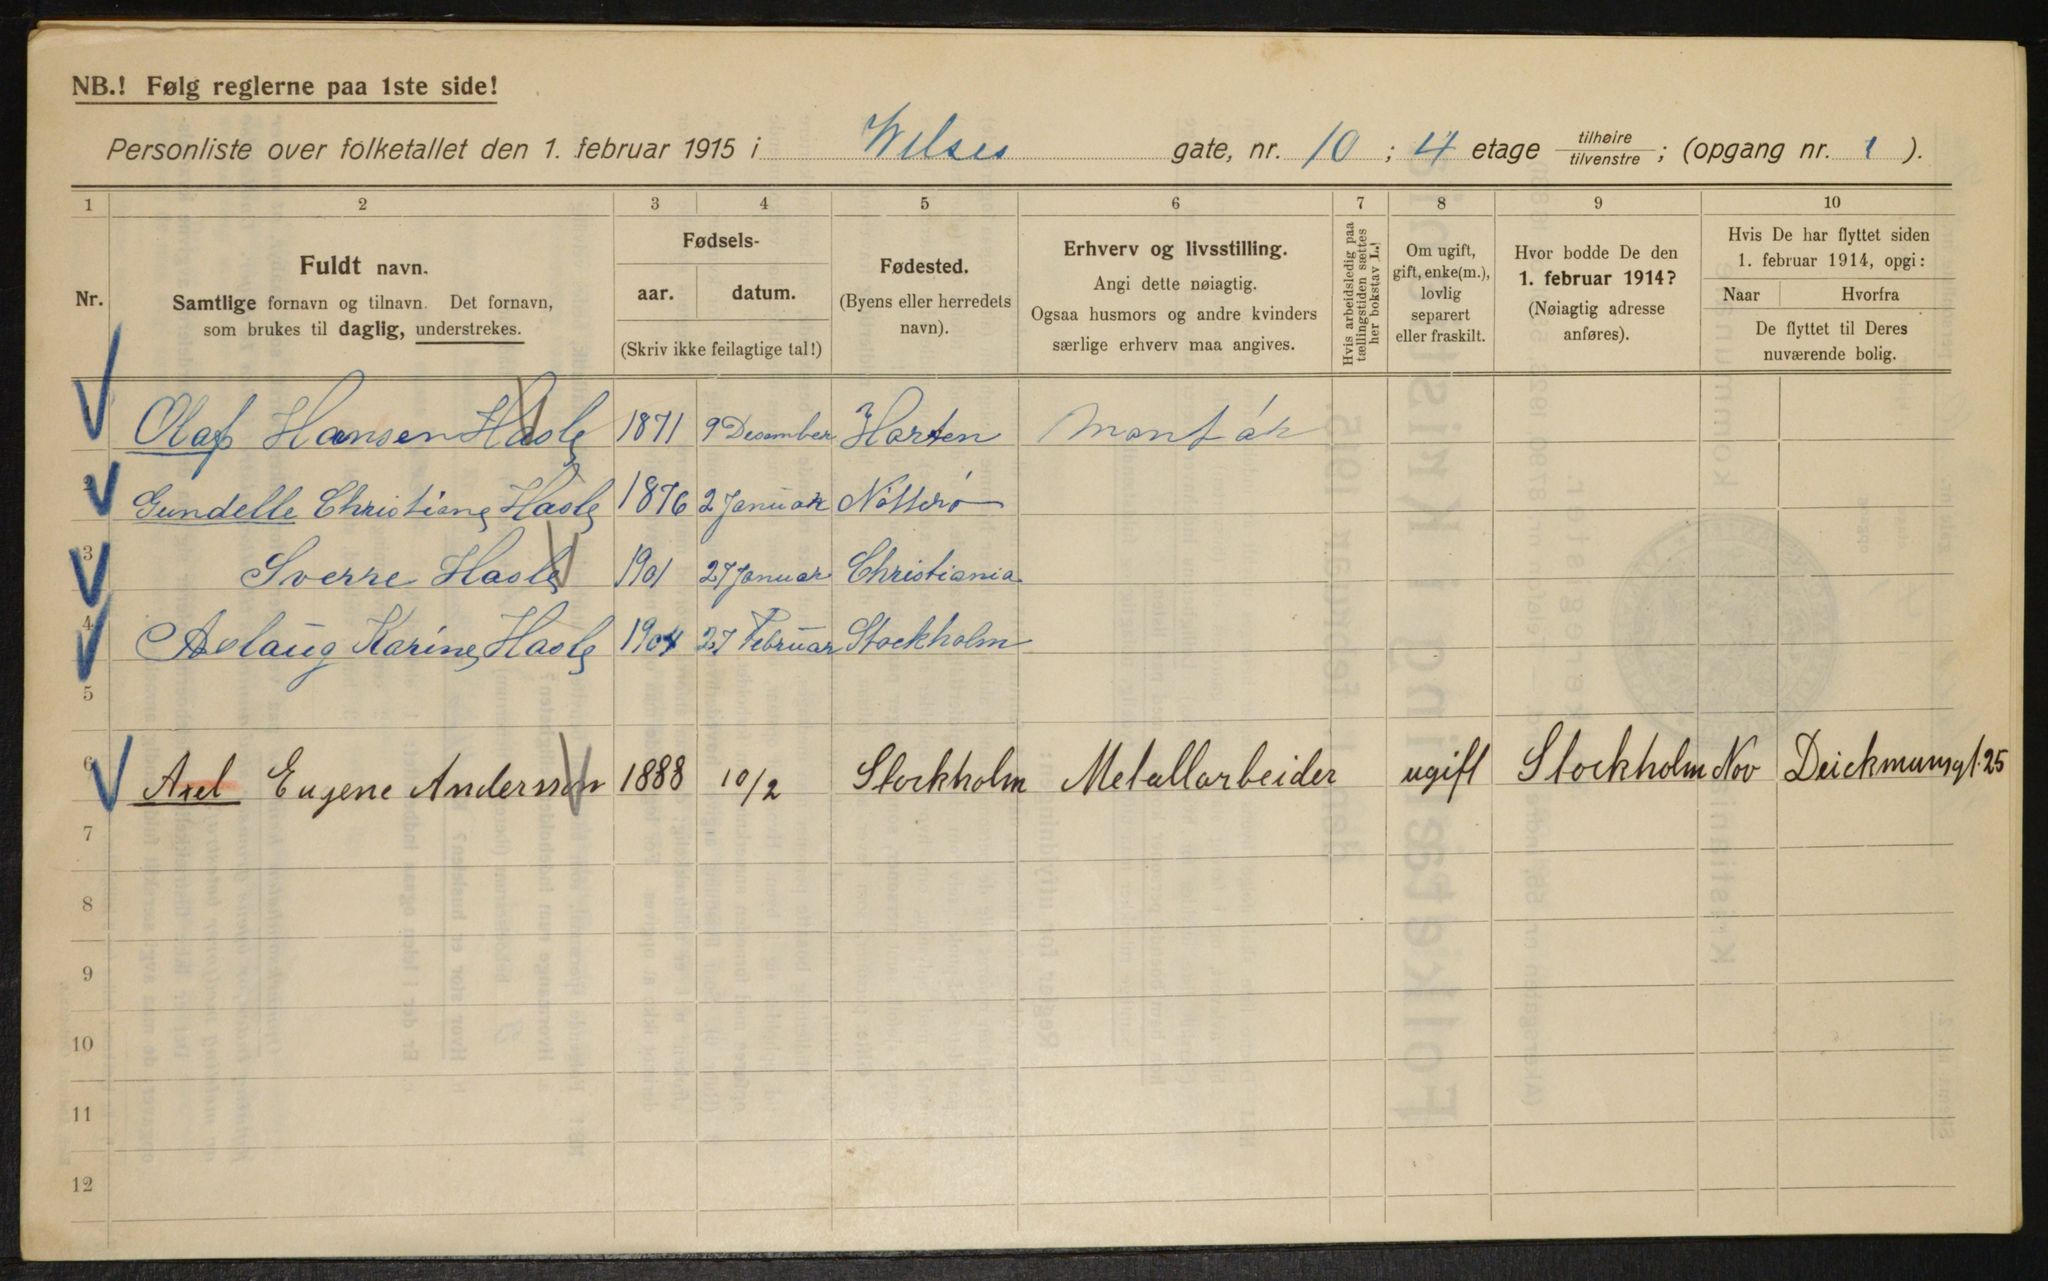 NB.! Følg reglerne paa 1ste side!
Personliste over folketallet den 1. februar 1915 i Wilses gate, nr. 10; 4 etage tilhøire / tilvenstre; (opgang nr. 1).
1 2 3 4 5 6 7 8 9 10
Nr.
Fuldt navn.
Samtlige fornavn og tilnavn. Det fornavn,
som brukes til daglig, understrekes.
Fødsels-
aar. datum.
(Skriv ikke feilagtige tal!)
Fødested.
(Byens eller herredets
navn).
Erhverv og livsstilling.
Angi dette nøiagtig.
Ogsaa husmors og andre kvinders
særlige erhverv maa angives.
Hvis arbeidsledig paa
tællingstiden sættes
her bokstav L.!
Om ugift,
gift, enke(m.),
lovlig
separert
eller fraskilt.
Hvor bodde De den
1. februar 1914?
(Nøiagtig adresse
anføres).
Hvis De har flyttet siden
1. februar 1914, opgi:
Naar Hvorfra
De flyttet til Deres
nuværende bolig.
Olaf Hansen Hasle 1871 9 Desember Horten Montör
2 Gundelle Christiane Hasle 1876 2 Januar Nötterö
3 Sverre Hasle 1901 27 Januar Christiania
4 Aslaug Karine Hasle 1904 27 Februar Stockholm
5
6 Axel Eugene Andersson 1888 10/2 Stockholm Metallarbeider ugift Stockholm Nov Deickmansgt. 25
7
8
9
10
11
12